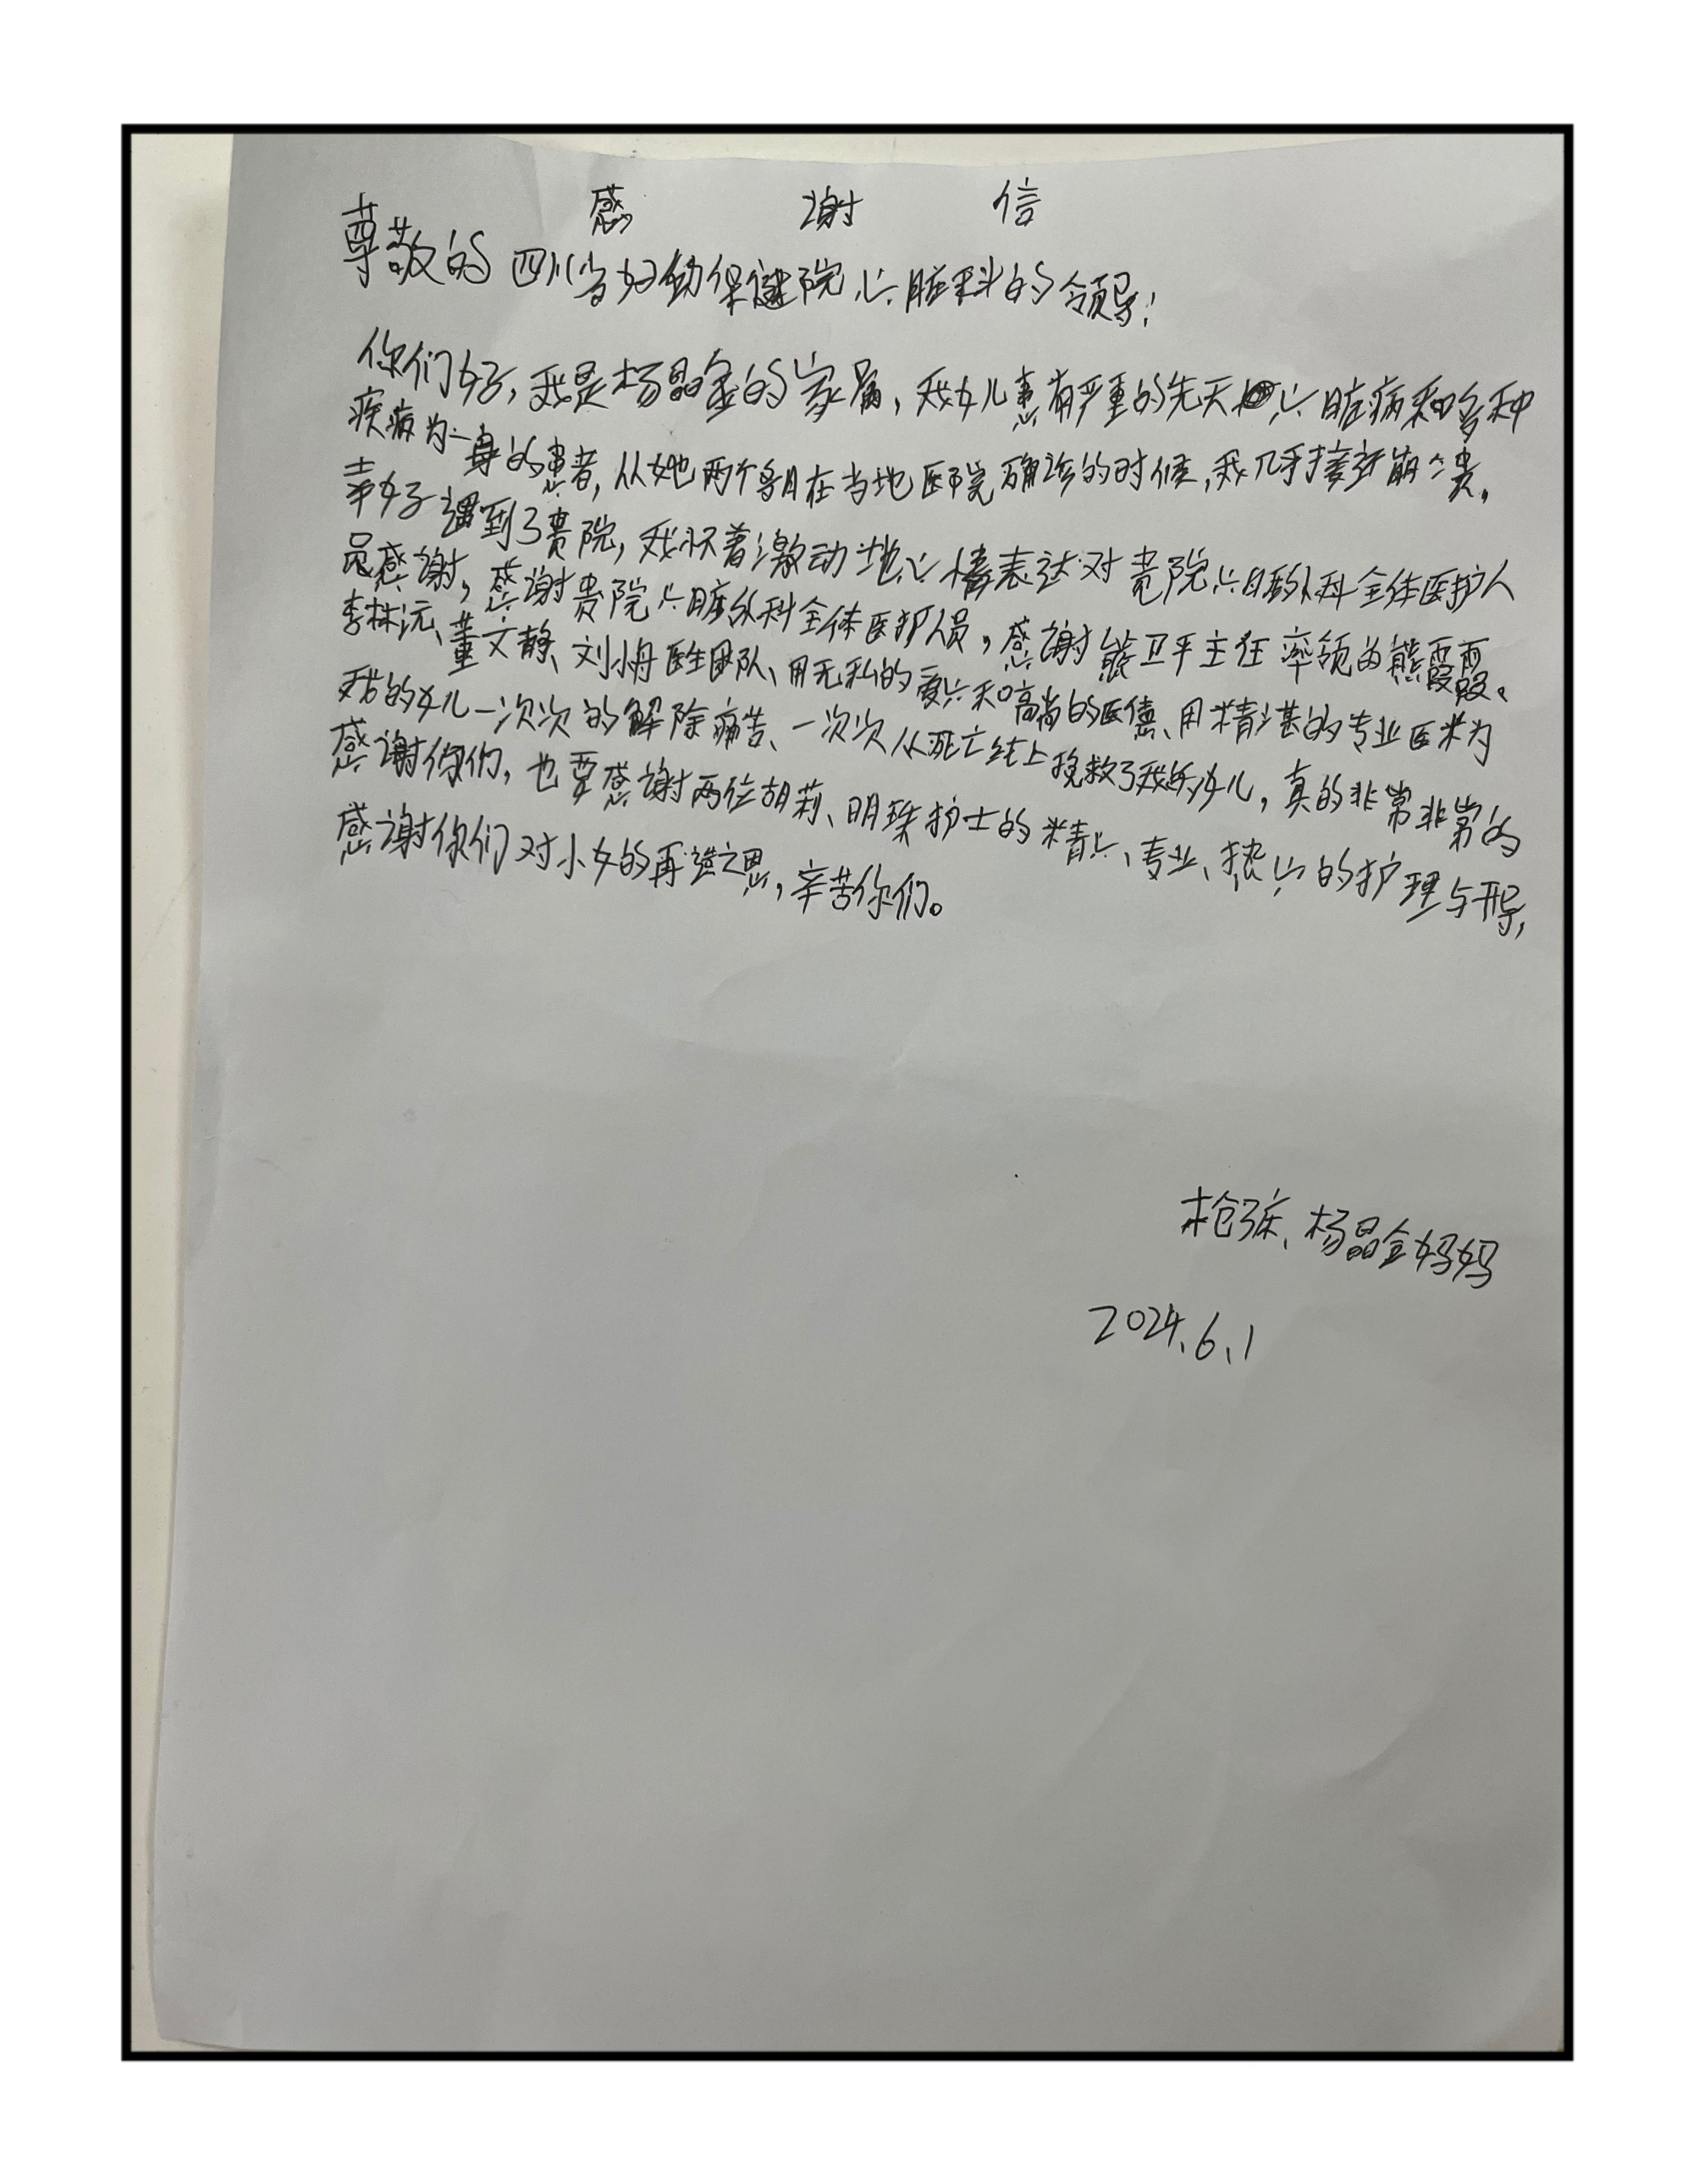 感 谢 信
尊敬的四川省妇幼保健院心脏科的领导:
你们好,我是杨晶金的家属,我女儿患有严重的先天心脏病和多种
疾病为一身的患者,从她两个月在当地医院确诊的时候,我几乎接近崩溃,
幸好遇到了贵院,我怀着激动地心情表达对贵院心脏外科全体医护人
员感谢,感谢贵院心脏外科全体医护人员,感谢熊卫平主任率领的熊霞霞、
李林沅、董文静、刘小丹医生团队、用无私的爱心和高尚的医德、用精湛的专业医术为
我的女儿一次次的解除痛苦、一次次从死亡线上挽救了我的女儿,真的非常非常的
感谢你们,也要感谢两位胡莉、明珠护士的精心、专业、热心的护理与开导,
感谢你们对小女的再造之恩,辛苦你们。
杨晶金妈妈
2024.6.1